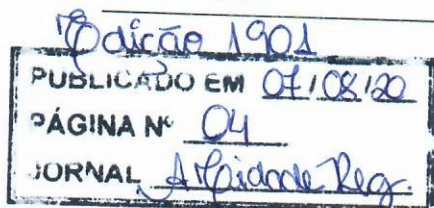 Edição 1901
PUBLICADO EM 07/08/20
PÁGINA Nº 04
JORNAL A Cidade Reg.